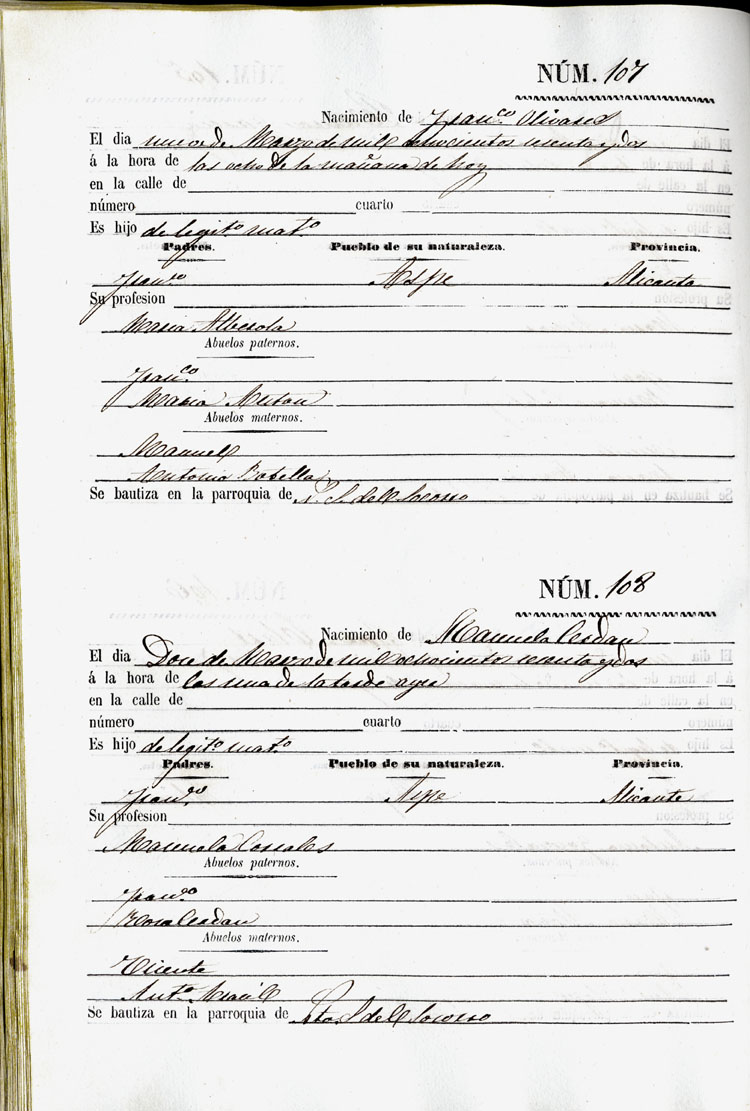 NÚM. 107
Nacimiento de Franco. Olivares
El dia nueve de Marzo de mil ochocientos sesenta y dos
á la hora de las ocho de la mañana de hoy
en la calle de
número cuarto
Es hijo de legito. mato.
Padres. Pueblo de su naturaleza. Provincia.
Franco. Aspe Alicante
Su profesion
Maria Alberola
Abuelos paternos.
Franco.
Maria Anton
Abuelos maternos.
Manuel
Antonia Botella
Se bautiza en la parroquia de N. S. del Socorro
NÚM. 108
Nacimiento de Manuela Cerdan
El dia Doce de Marzo de mil ochocientos sesenta y dos
á la hora de las una de la tarde ayer
en la calle de
número cuarto
Es hijo de legito. mato.
Padres. Pueblo de su naturaleza. Provincia.
Franco. Aspe Alicante
Su profesion
Manuela Corrales
Abuelos paternos.
Franco.
Rosa Cerdan
Abuelos maternos.
Vicente
Anta.
Se bautiza en la parroquia de S. del Socorro